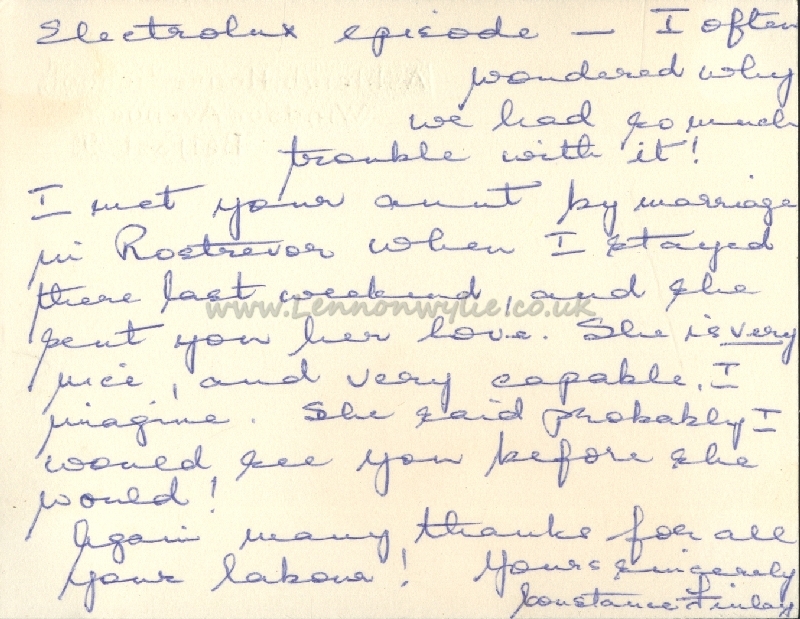 Electrolux episode — I often
wondered why
we had so much
trouble with it!
I met your aunt by marriage
in Rostrevor when I stayed
there last weekend, and she
www.Lennonwylie.co.uk
sent you her love. She is very
nice, and very capable, I
imagine. She said probably I
would see you before she
would!
Again many thanks for all
your labour! Yours sincerely
Constance Finlay